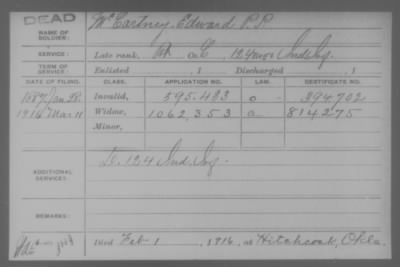 DEAD
NAME OF SOLDIER: McCartney, Edward P.P.
SERVICE: Late rank, Co. 124 Ind. Inf.
TERM OF SERVICE: Enlisted , 1 Discharged , 1
DATE OF FILING. CLASS. APPLICATION NO. LAW. CERTIFICATE NO.
1887 Jan. 28. Invalid, 595.483 394,702
1916 Mar 11 Widow, 1.062.353 814275
Minor,
ADDITIONAL SERVICES: 124 Ind. Inf.
REMARKS:
Died Feb 1 , 1916, at Hitchcock, Okla.